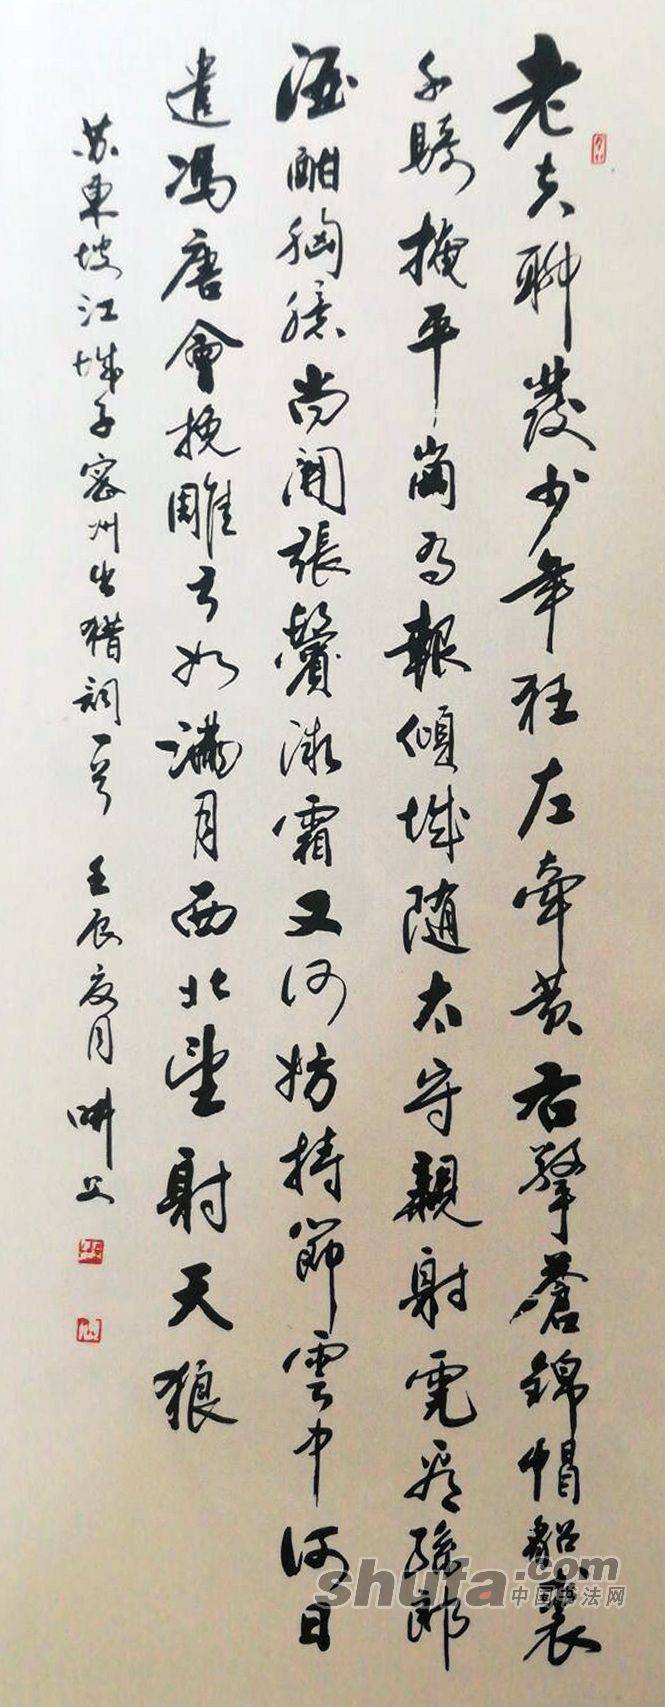 老夫聊發少年狂左牽黃右擎蒼錦帽貂裘
千騎捲平崗為報傾城隨太守親射虎看孫郎
酒酣胸膽尚開張鬢微霜又何妨持節雲中何日
遣馮唐會挽雕弓如滿月西北望射天狼
苏東坡江城子密州出猎詞一首 壬辰夏月
shufa.com
中国书法网